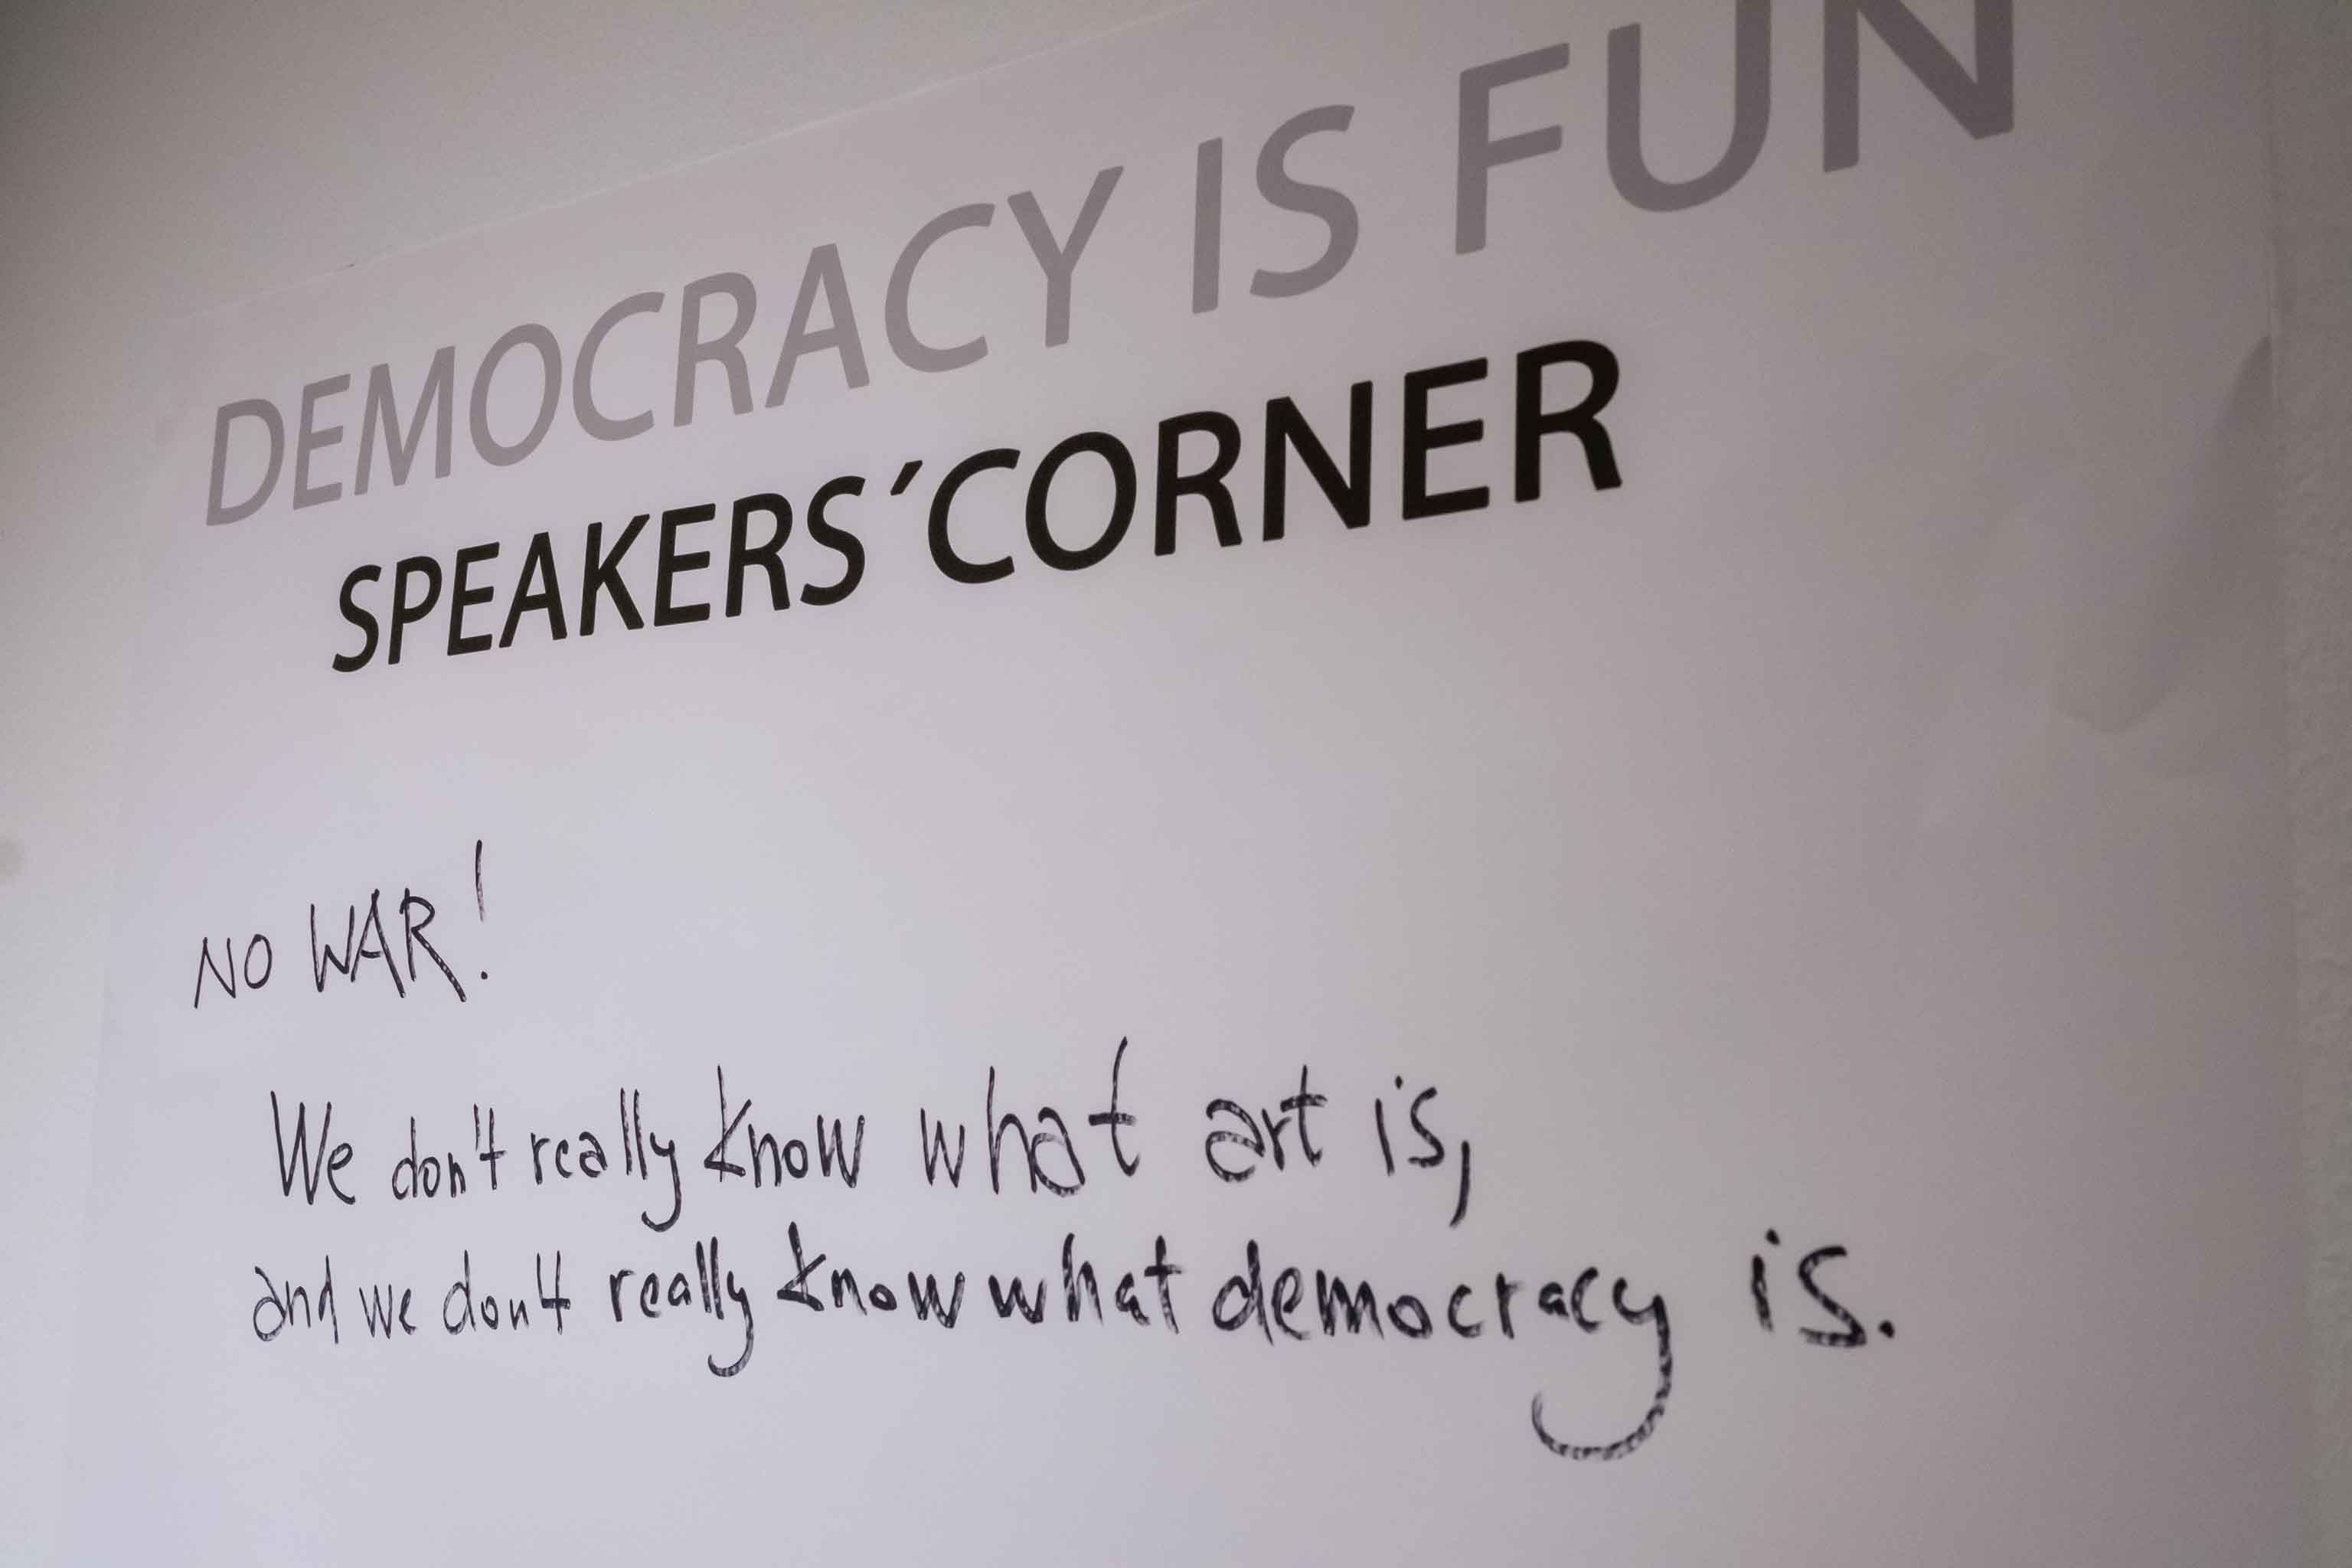 DEMOCRACY IS FUN
SPEAKERS´CORNER
NO WAR!
We don't really know what art is,
and we don't really know what democracy is.